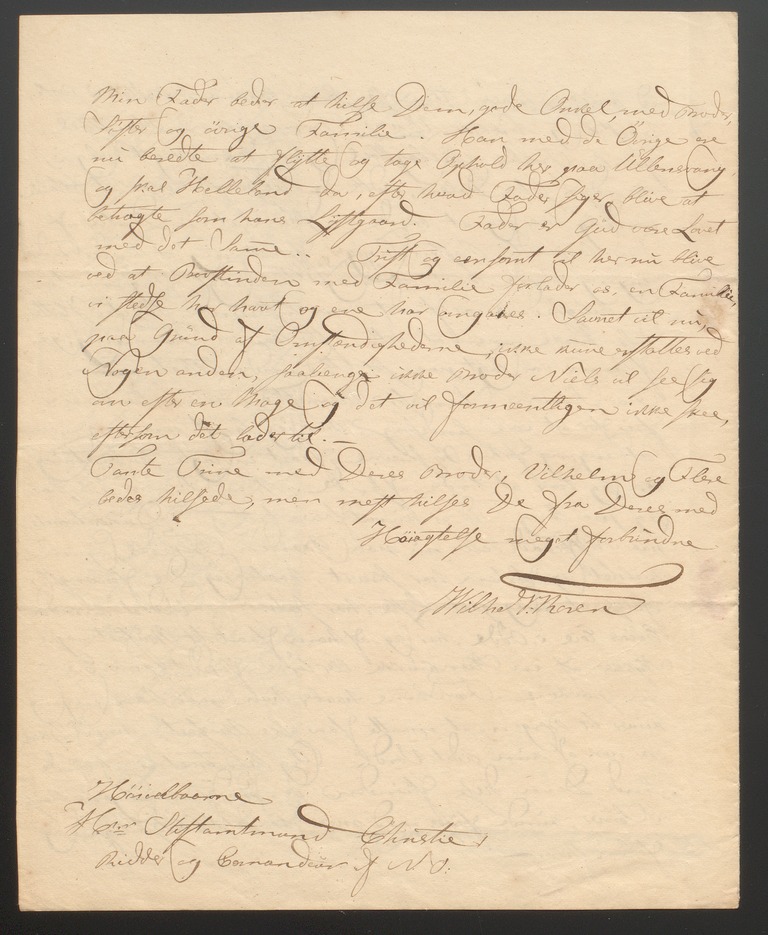 Min Fader beder at hilse Dem, gode Onkel, med Broder,
Søster og øvrige Familie. Han med de Øvrige ere
nu beredte at flytte og tage Ophold her paa Ullensvang,
og skal Helleland da, efter hvad Fader siger, blive at
betragte som hans Lystgaard. Fader er Gud være Lovet
med det Samme.. Trist og eensomt vil her nu blive
ved at med Familie forlader os, en Familie,
vi stedse har havt og ene har . Savnet vil nu,
paa Grund af Omstændighederne, ikke kunne erstattes ved
Nogen anden, saalænge ikke Broder Niels vil see sig
om efter en Mage og det vil formeentligen ikke skee,
eftersom det lader til. —
Tante Trine med Deres Broder, Vilhelm og Flere
bedes hilsede, men mest hilses De fra Deres med
Høiagtelse meget forbundne
Wilh. Koren
Høivelbaarne
Hrr Stiftamtmand Christie,
Ridder og Comandeur af N. O.